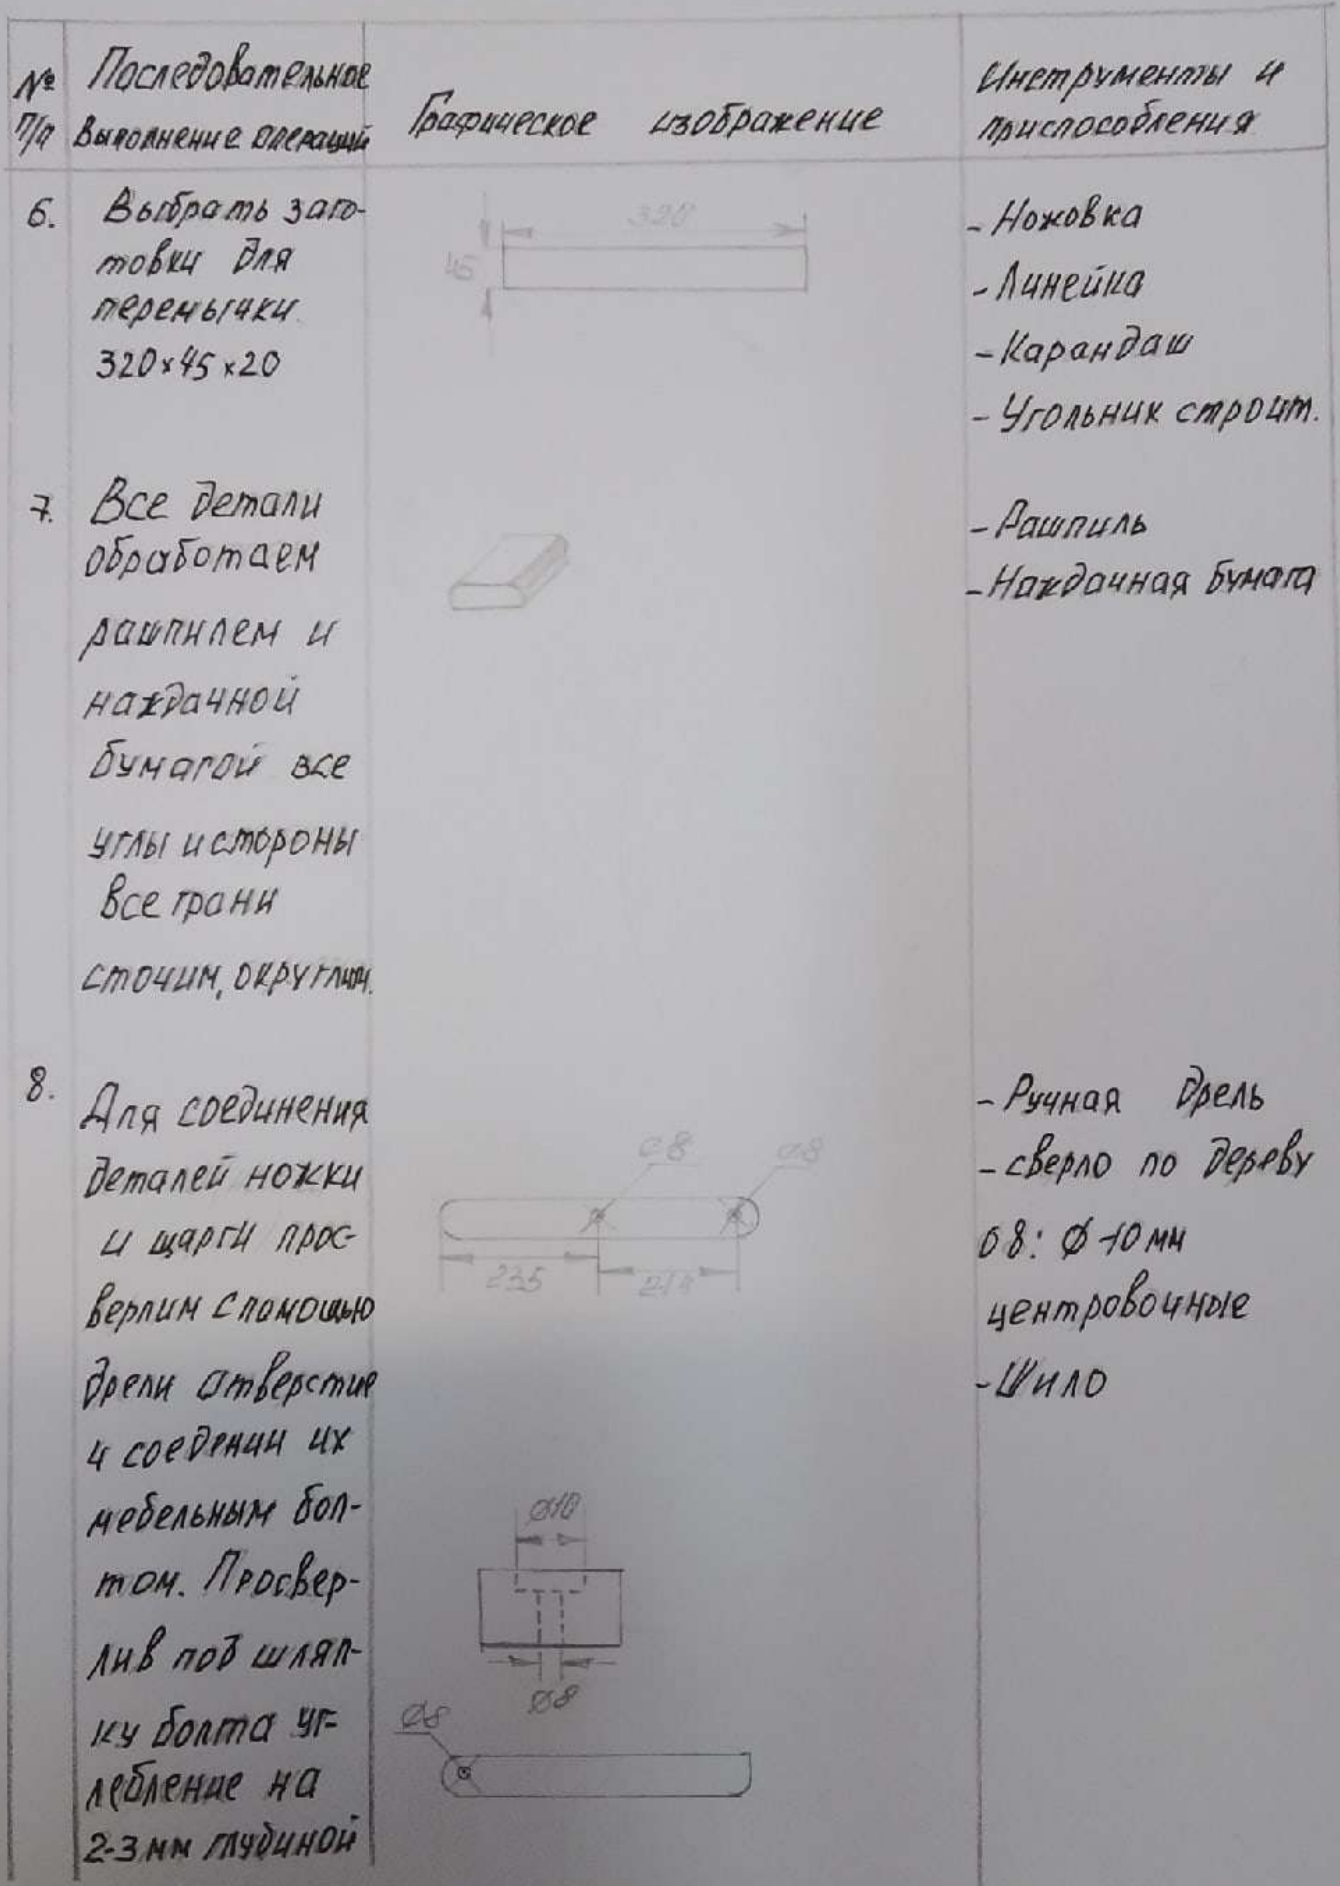 № п/п
Последовательное
выполнение операций
Графическое изображение
Инструменты и
приспособления
6.
Выбрать заго-
товки для
перемычки
320×45×20
320
45
- Ножовка
- Линейка
- Карандаш
- Угольник строит.
7.
Все детали
обработаем
рашпилем и
наждачной
бумагой все
углы и стороны
все грани
сточим, округлим.
- Рашпиль
- Наждачная бумага
8.
Для соединения
деталей ножки
и царги прос-
верлим с помощью
дрели отверстие
и соеденим их
мебельным бол-
том. Просвер-
лив под шляп-
ку болта уг-
лебление на
2-3 мм глубиной
⌀8
⌀8
235
214
⌀10
⌀8
⌀8
- Ручная дрель
- сверло по дереву
⌀8: ⌀-10 мм
центровочные
- Шило